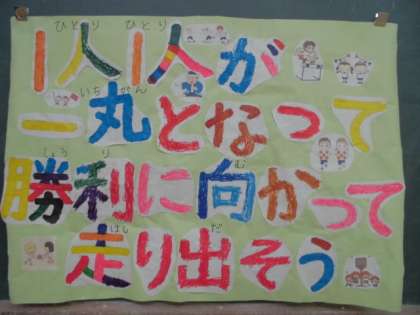 ひとり ひとり
1人1人が
いち がん
一丸となって
しょう り む
勝利に向かって
はし だ
走り出そう